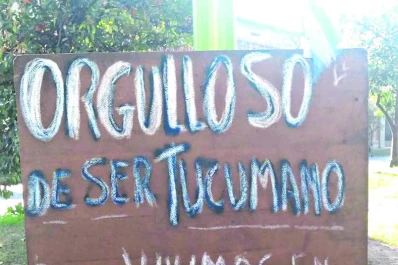 ORGULLOSO
DE SER TUCUMANO